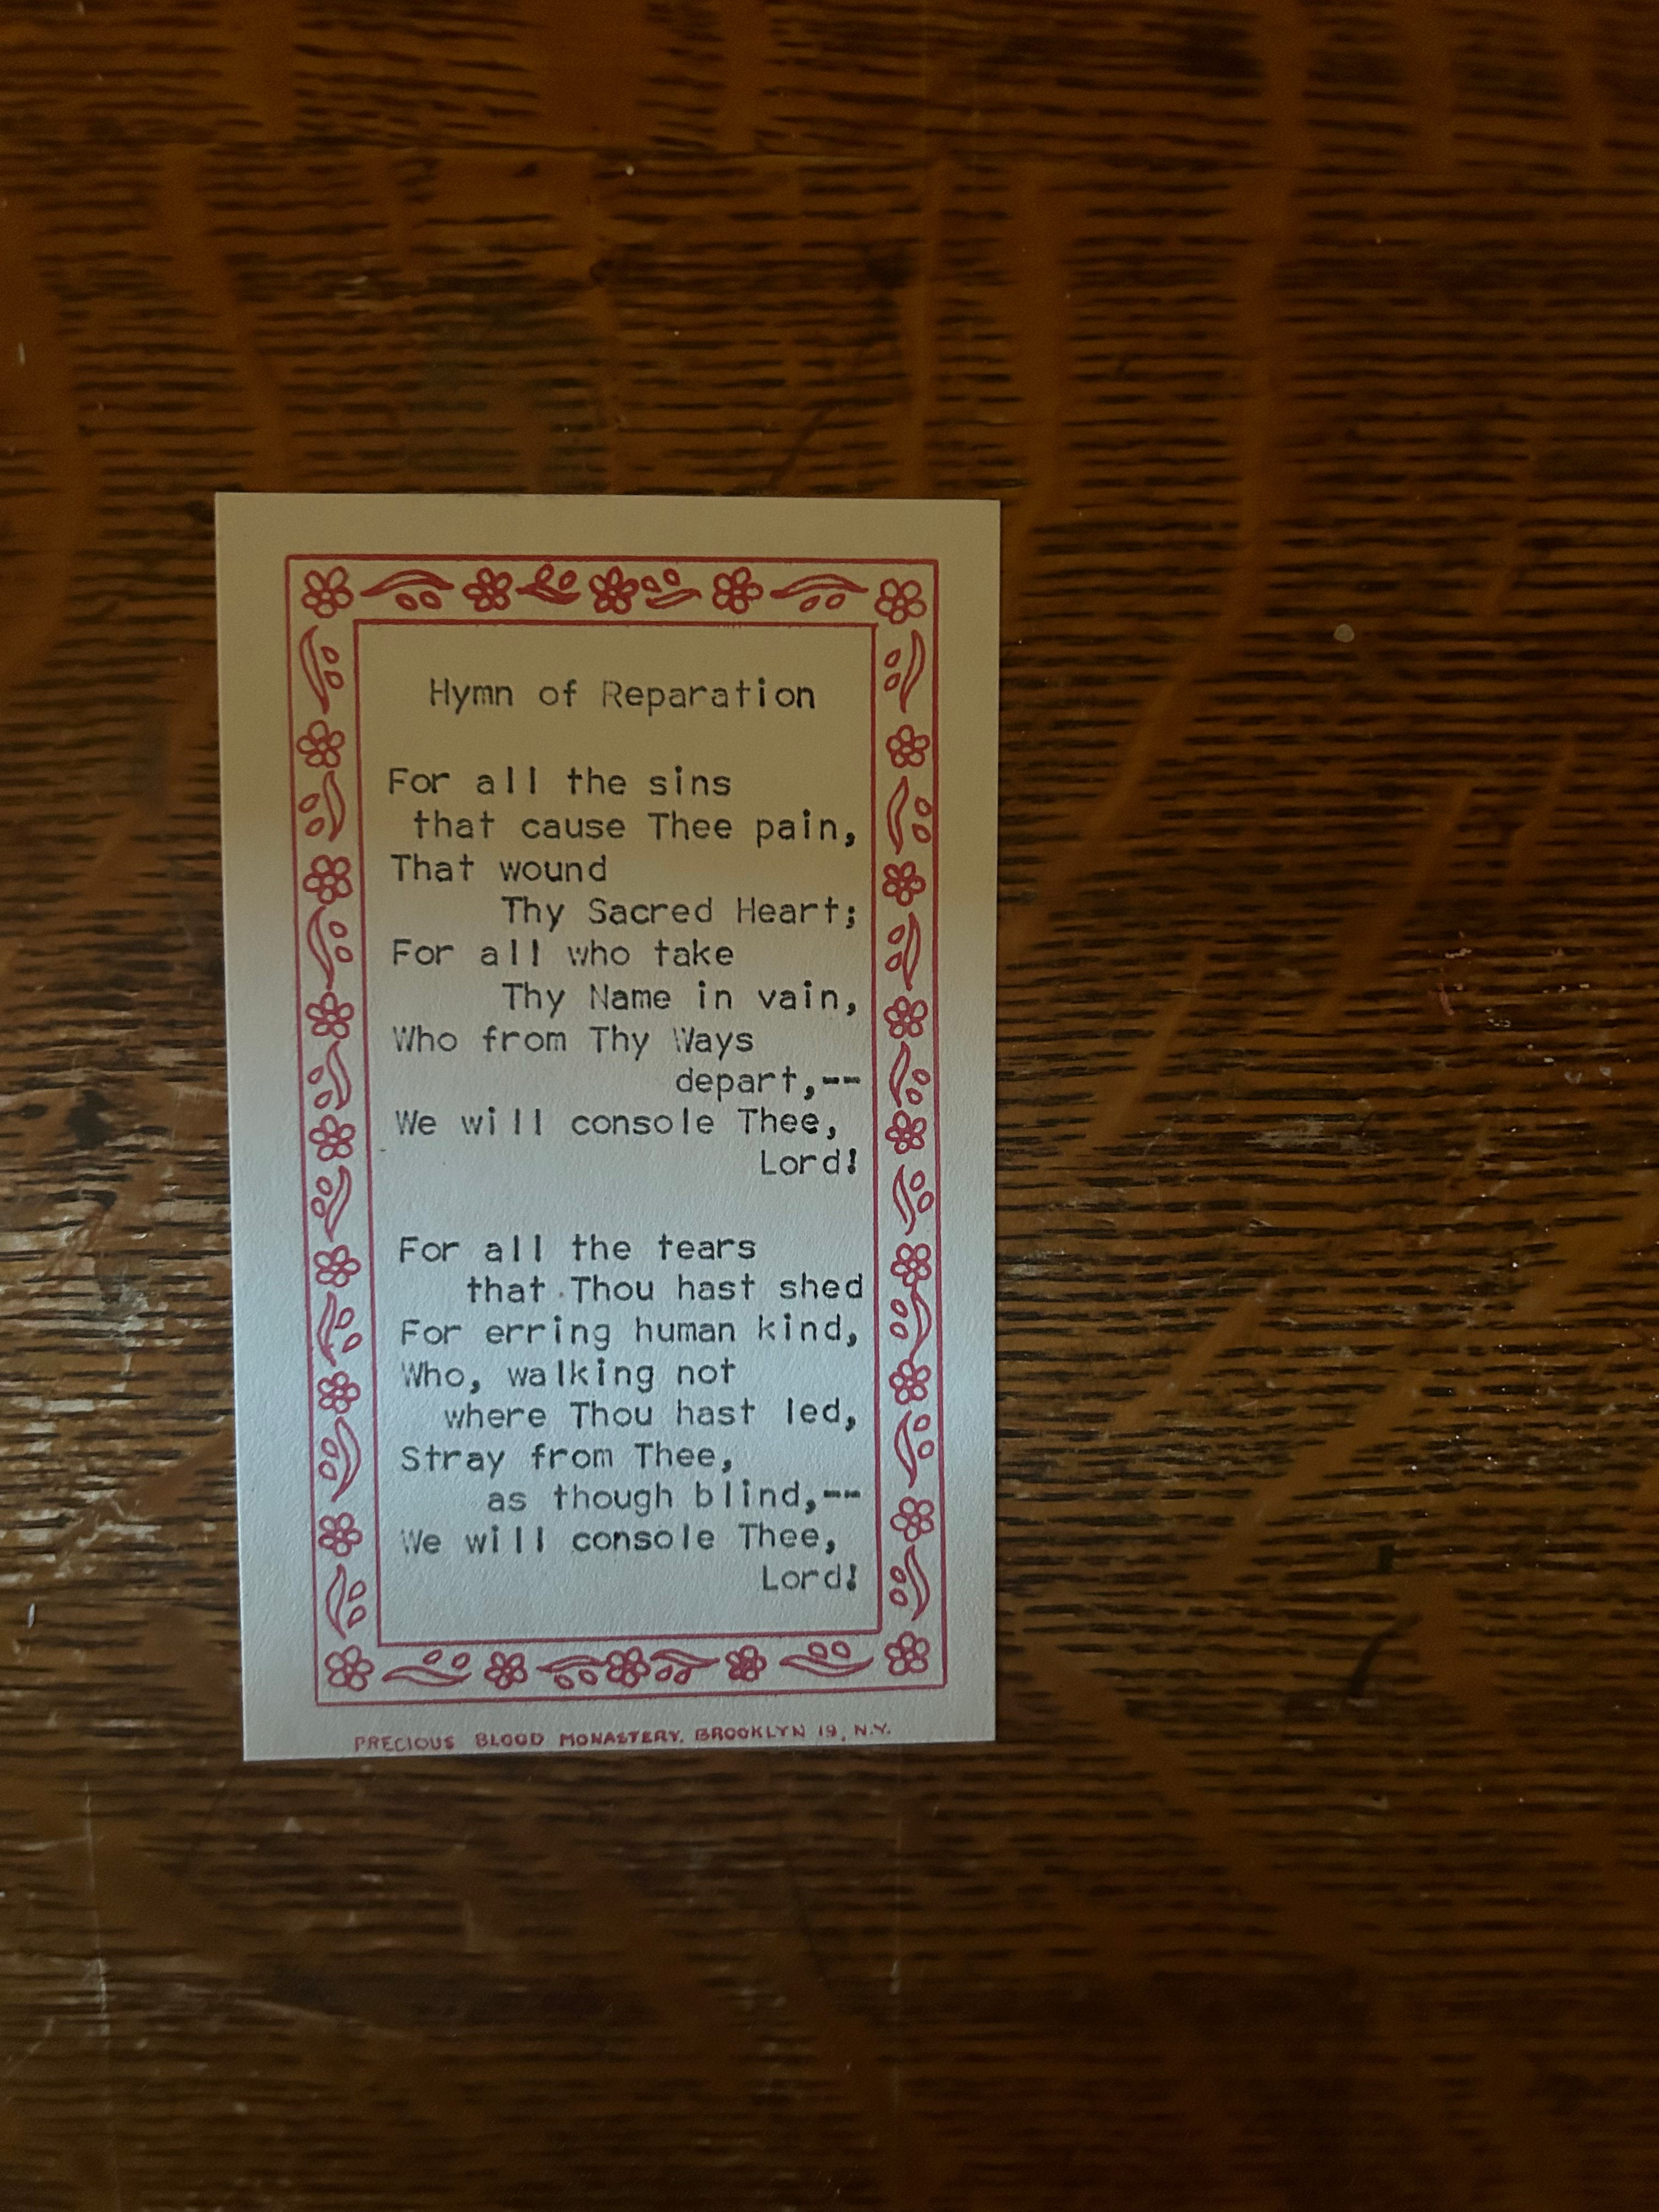 Hymn of Reparation
For all the sins
that cause Thee pain,
That wound
Thy Sacred Heart;
For all who take
Thy Name in vain,
Who from Thy Ways
depart,--
We will console Thee,
Lord!
For all the tears
that Thou hast shed
For erring human kind,
Who, walking not
where Thou hast led,
Stray from Thee,
as though blind,--
We will console Thee,
Lord!
PRECIOUS BLOOD MONASTERY, BROOKLYN 19, N.Y.